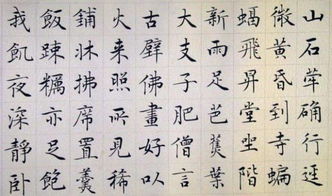 山石犖确行逕
微黄昏到寺蝙
蝠飛昇堂坐階
新雨足芭蕉葉
大支子肥僧言
古壁佛畫好以
火来照所見稀
鋪牀拂席置羹
飯踈糲亦足飽
我飢夜深靜卧